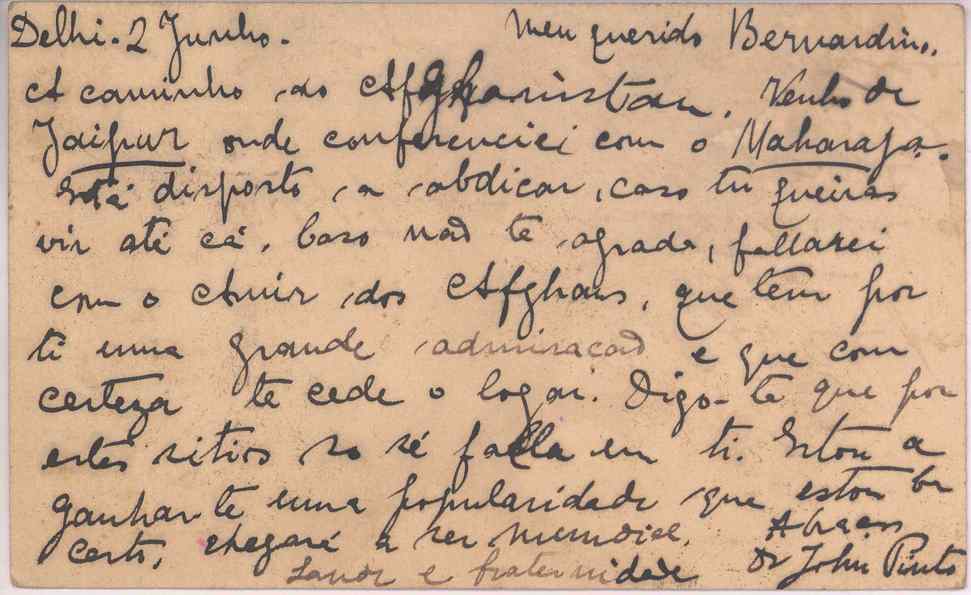 Delhi. 2 Junho. Meu querido Bernardino.
A caminho do Afghanistan. Venho de
Jaipur onde conferenciei com o Maharaja.
Está disposto a abdicar, caso tu queiras
vir até cá. Caso não te agrade, fallarei
com o Amir dos Afghans, que tem por
ti uma grande admiração e que com
certeza te cede o logar. Digo-te que por
estes sitios so sé falla em ti. Estou a
ganhar-te uma popularidade que estou be
certo, chegará a ser mundial. Abraços
Saude e fraternidade Dr John Pinto